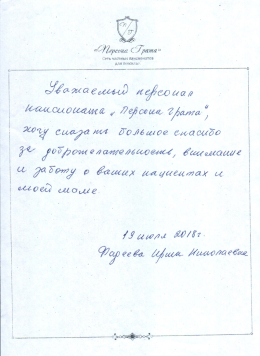 «Персона Грата»
сеть частных пансионатов
для пожилых
Уважаемый персонал
пансионата „Персона грата",
хочу сказать большое спасибо
за доброжелательность, внимание
и заботу о ваших пациентах и
моей маме.
19 июля 2018г.
Фадеева Ирина Николаевна